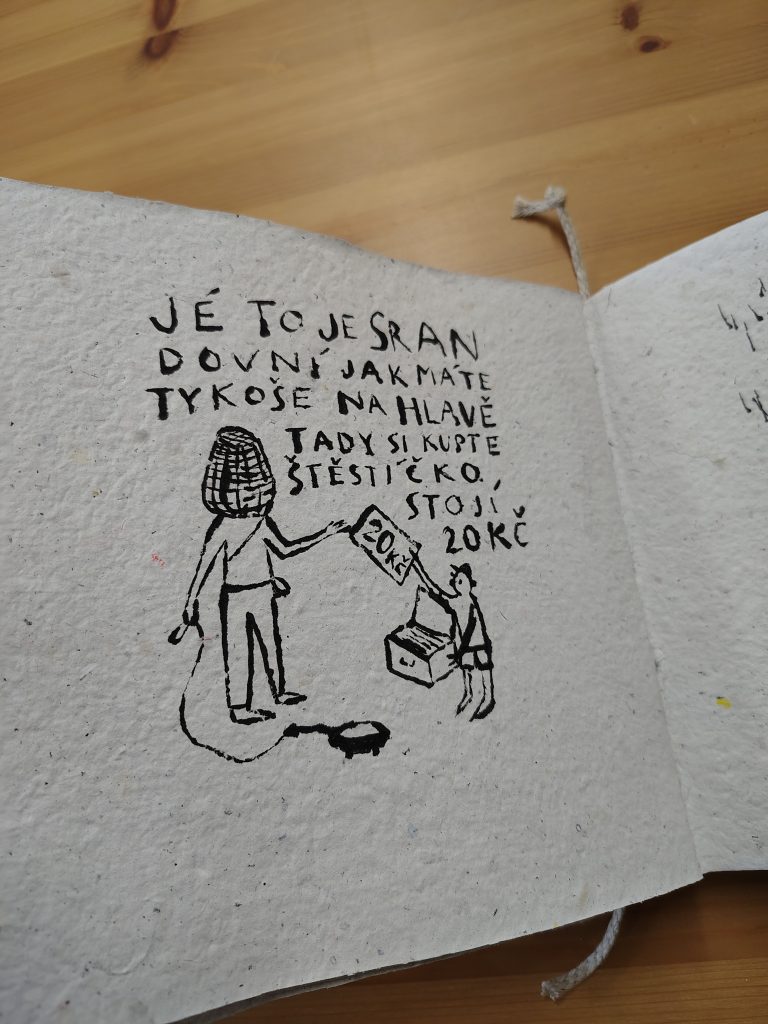 JÉ TO JE SRAN
DOVNÍ JAK MÁTE
TY KOŠE NA HLAVĚ
TADY SI KUPTE
ŠTĚSTÍČKO,
STOJÍ
20 KČ
20 KČ